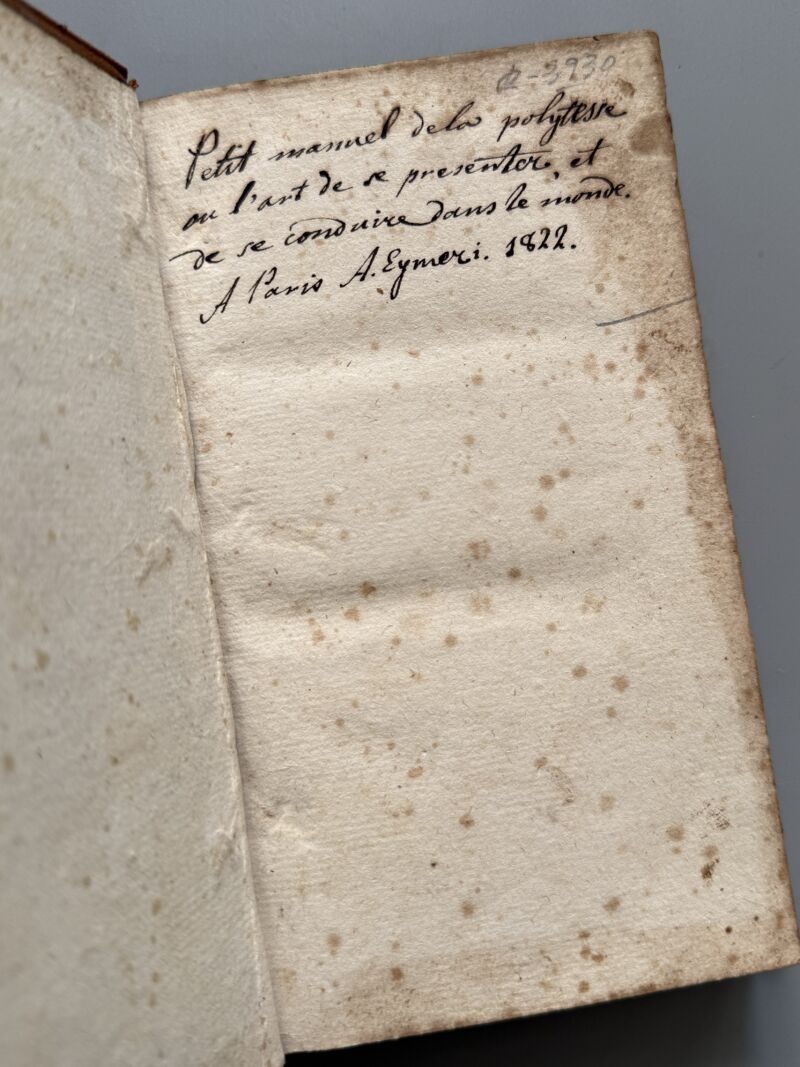 -3930
Petit manuel dela polytesse
ou l'art de se presenter, et
de se conduire dans le monde.
A Paris A. Eymeri. 1822.